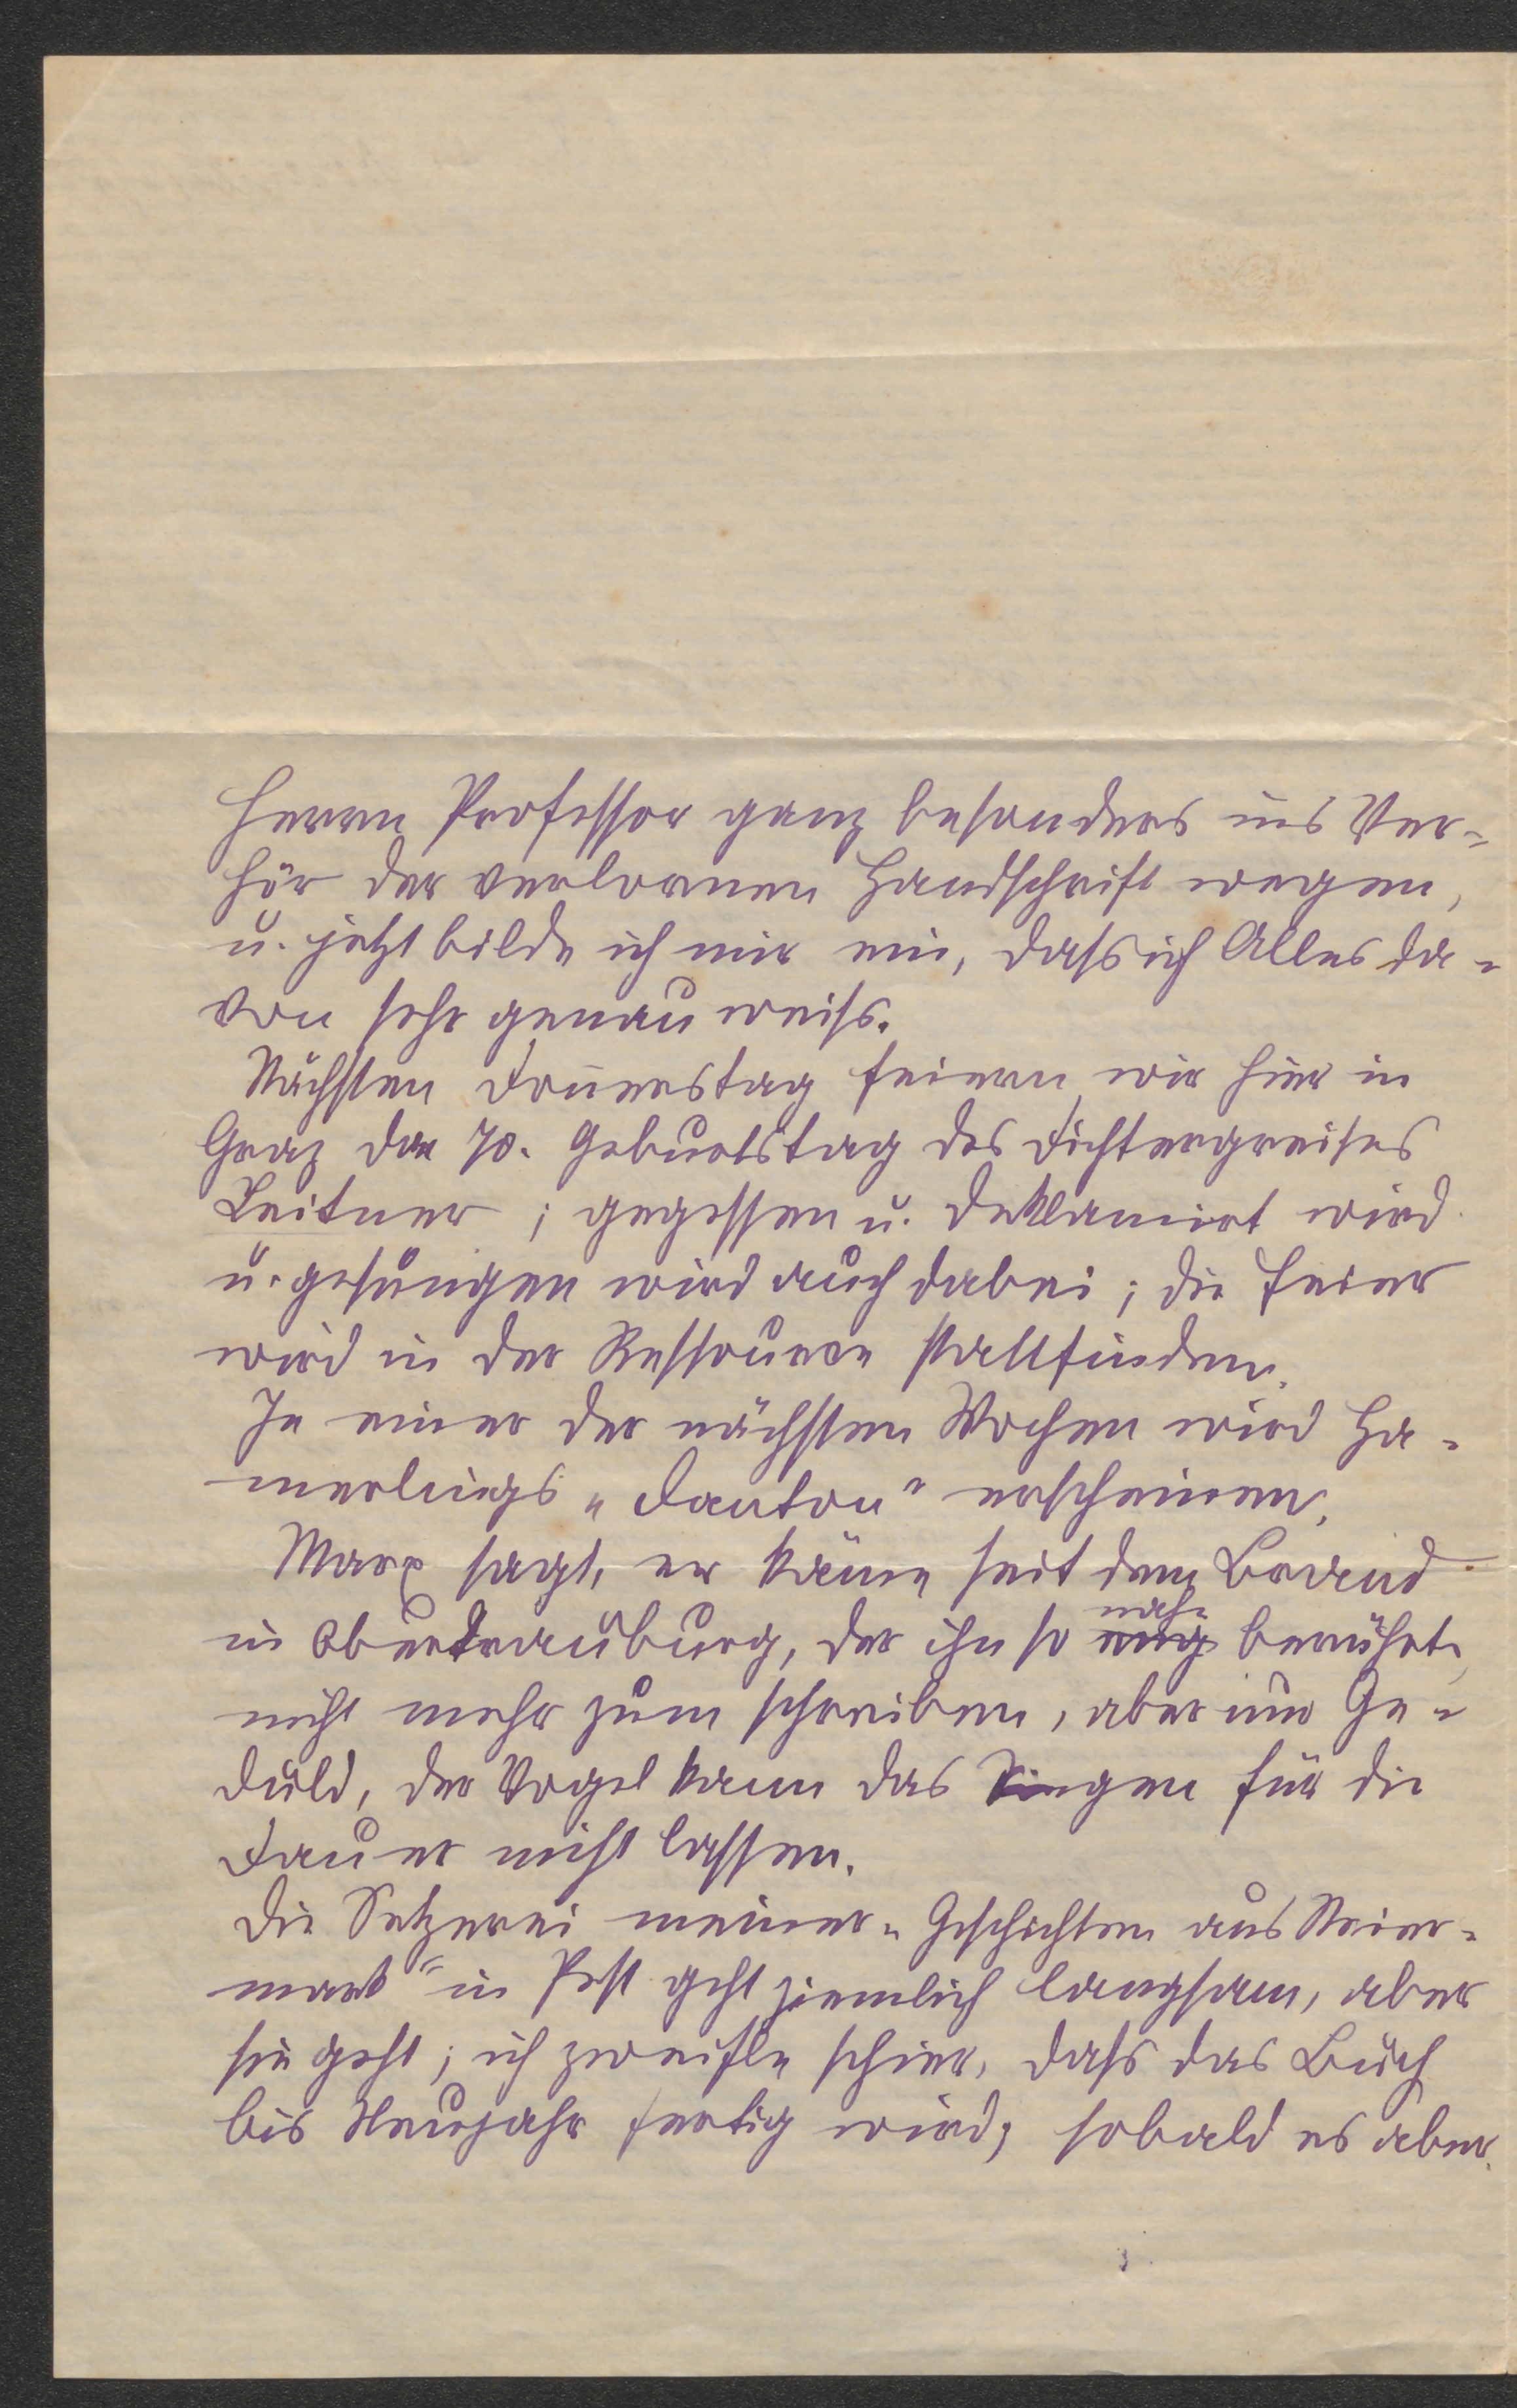 Herrn Professor ganz besonders ins Ver-
hör der verlornen Handschrift wegen,
u. jetzt bilde ich mir ein, dass ich Alles da-
von sehr genau weiss.
Nächsten Donnerstag feiern wir hier in
Graz den 70. Geburtstag des Dichtergreises
Leitner; gegessen u. deklamirt wird
u. gesungen wird auch dabei; die Feier
wird in der Ressource stattfinden.
In einer der nächsten Wochen wird Ha-
merlings „Danton" erscheinen.
Marx sagt, er käme seit dem Brand
in Oberdrauburg, der ihn so nahe
berührt,
nicht mehr zum schreiben, aber nur Ge-
duld, der Vogel kann das Singen für die
Dauer nicht lassen.
Die Setzerei meiner „Geschichten aus Steier-
mark" in Pest geht ziemlich langsam, aber
sie geht; ich zweifle schier, dass das Buch
bis Neujahr fertig wird; sobald es aber